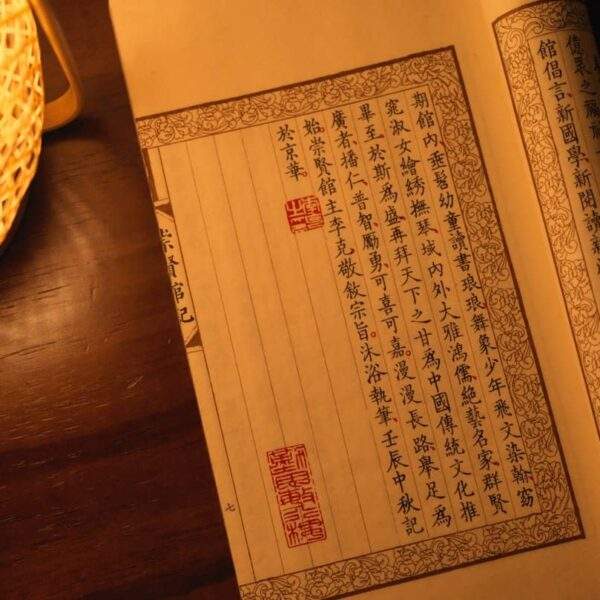 館倡言、新國學、新閱讀
期館內、垂髫幼童讀書琅琅、舞象少年飛文染翰、窈
窕淑女繪綉撫琴、域內外大雅鴻儒、絕藝名家、群賢
畢至、於斯爲盛。再拜天下之甘爲中國傳統文化推
廣者、播仁普智、勵勇、可喜可嘉。漫漫長路、舉足爲
始。崇賢館主李克敬敘宗旨。沐浴執筆、壬辰中秋記
於京華。
崇賢館記
七